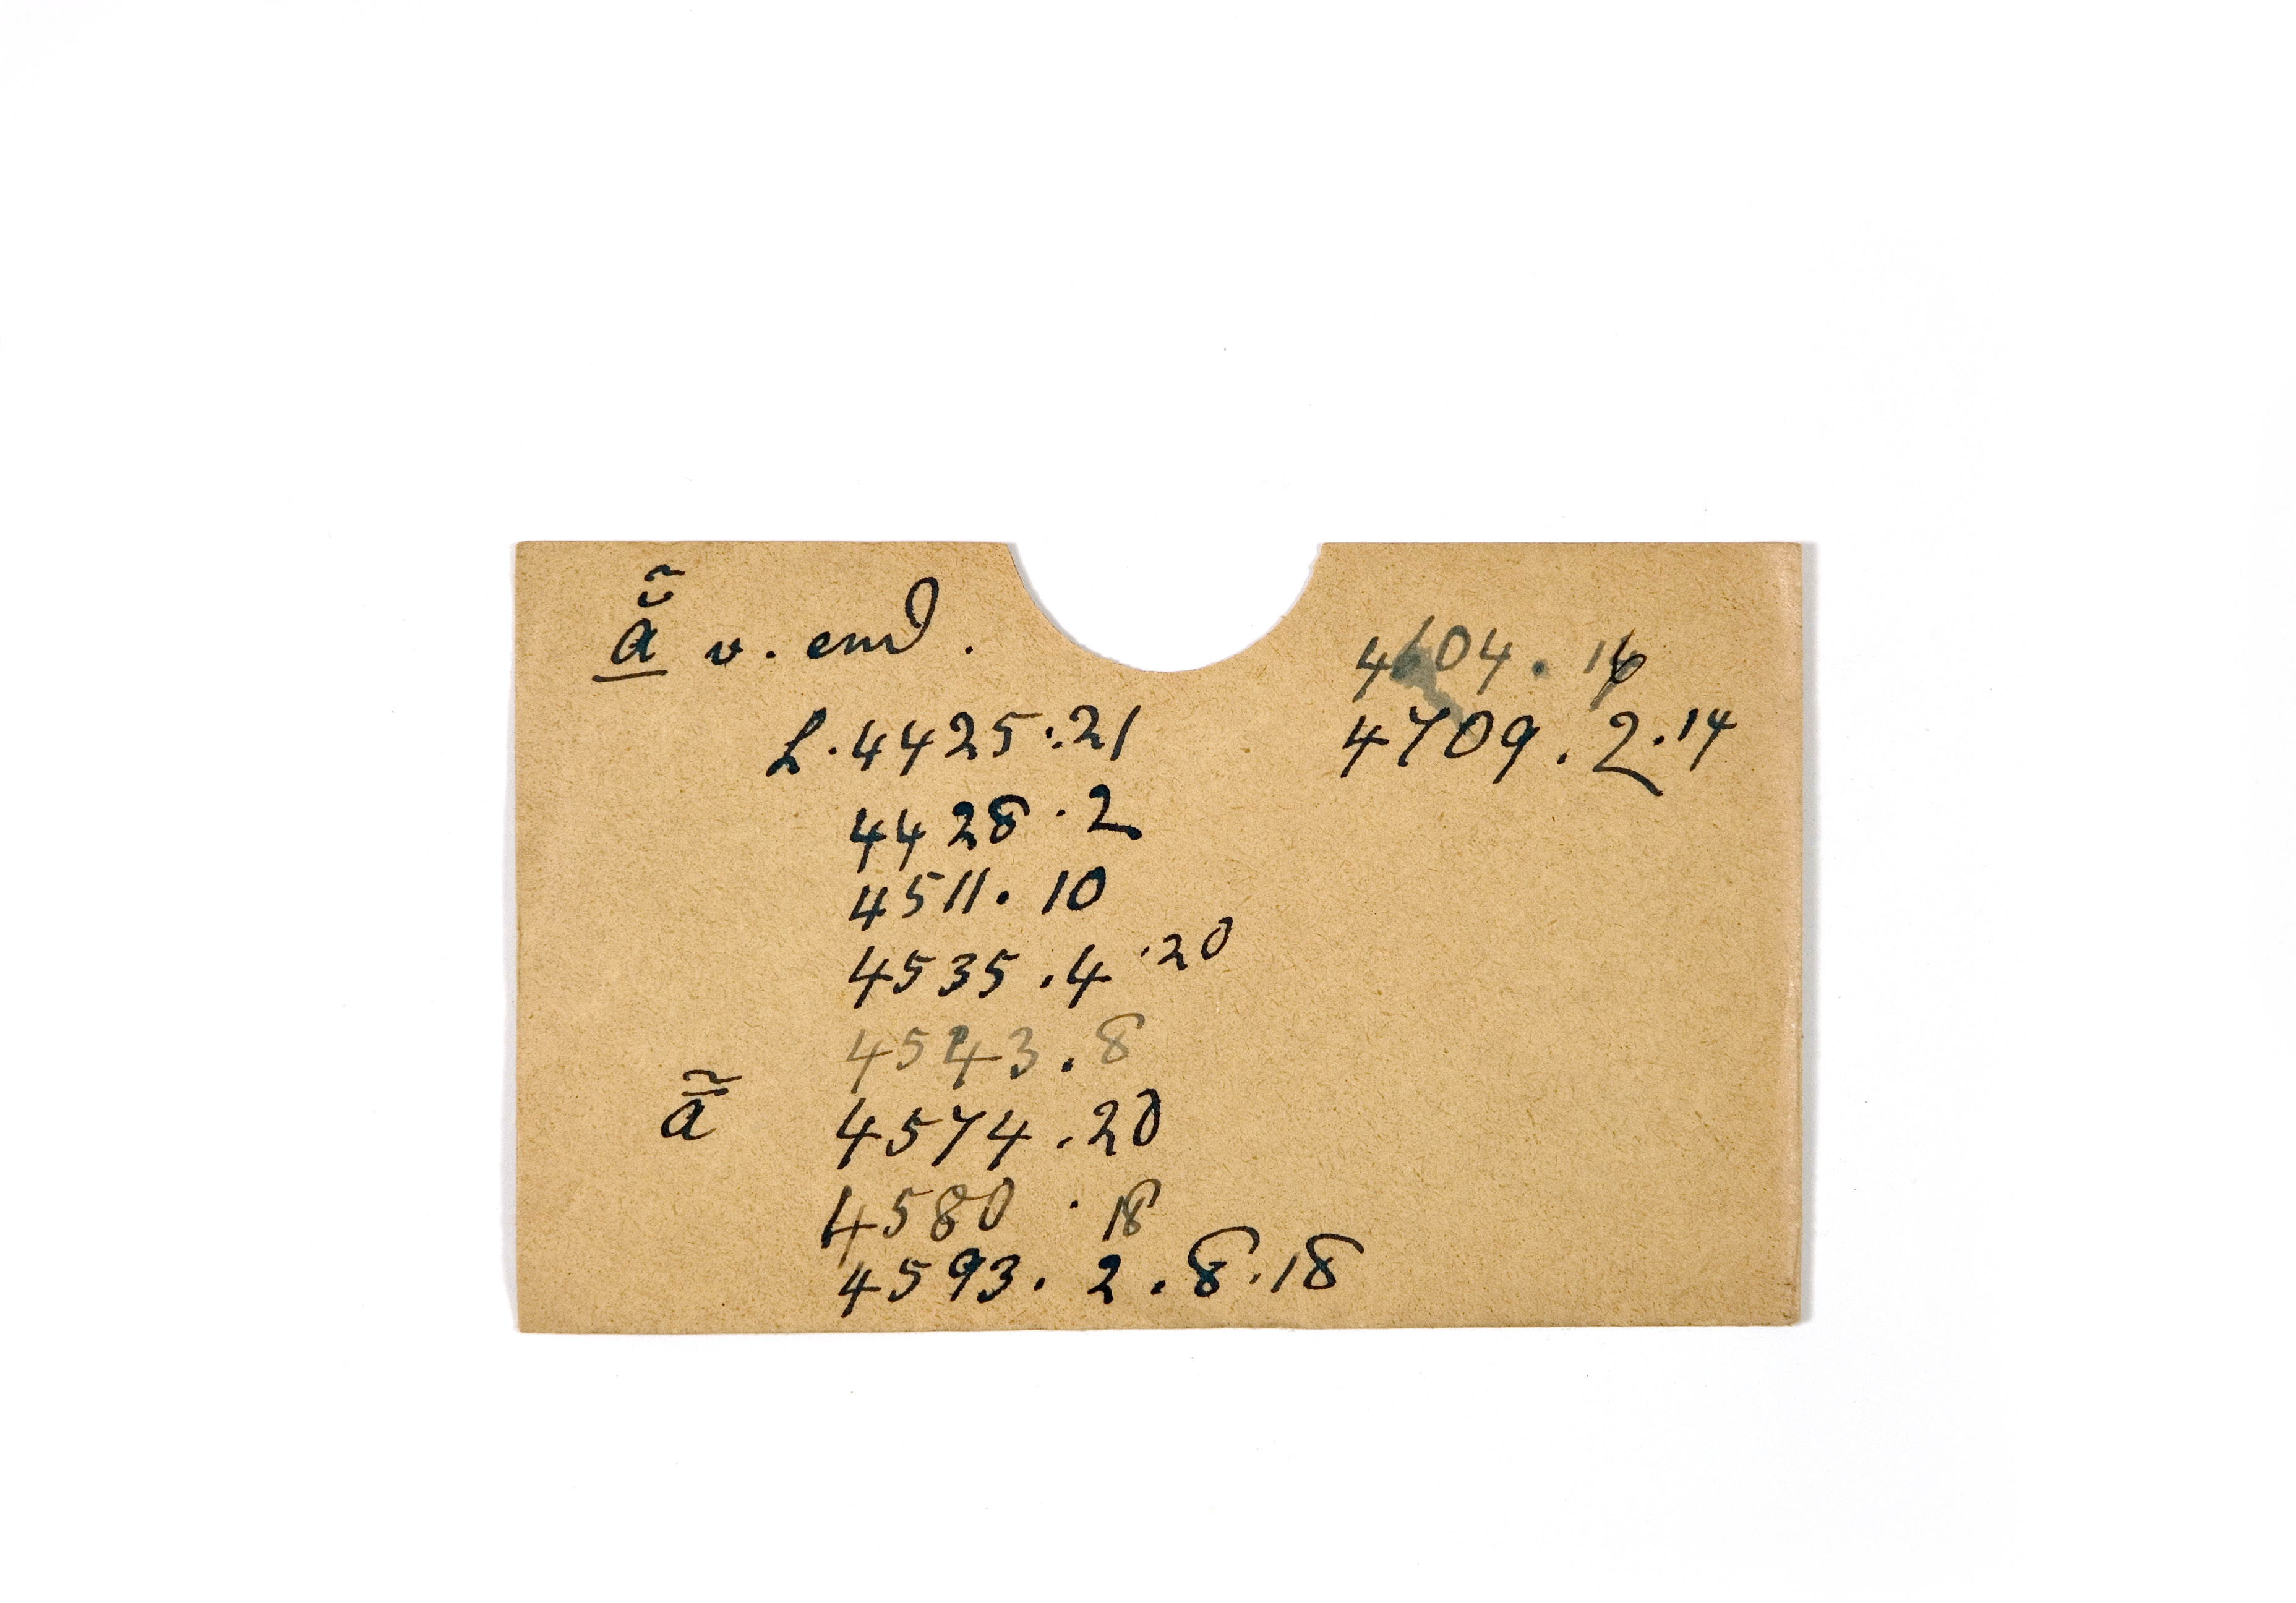 ā̆̃ v. end.
L. 4425. 21
4428. 2
4511. 10
4535. 4. 20
4543. 8
ā̃ 4574. 20
4580. 18
4593. 2. 8. 18
4604. 16
4709. 2. 14